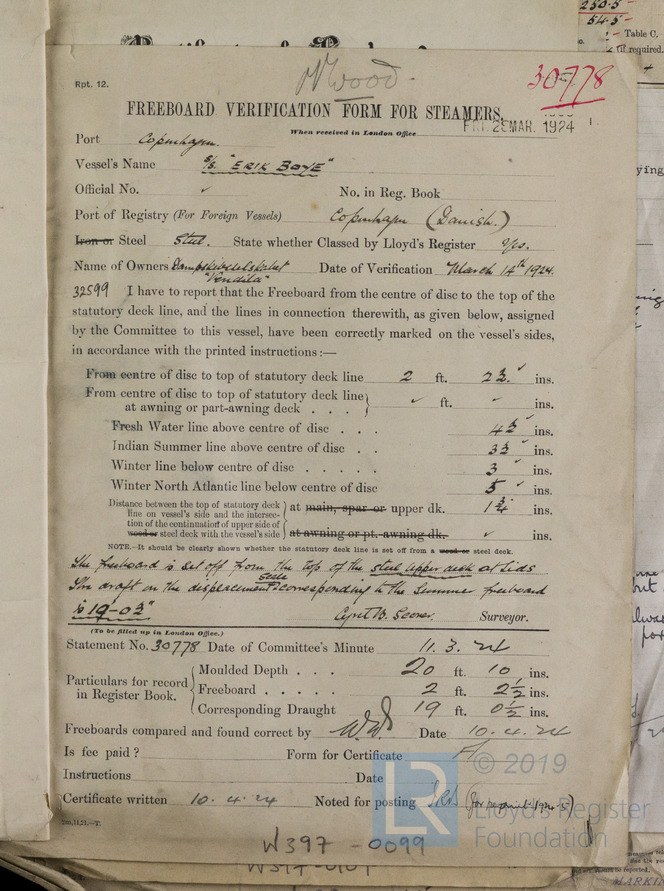 250.5
54.5
Table C.
required.
Rpt. 12.
Wood
30778
FREEBOARD VERIFICATION FORM FOR STEAMERS.
When received in London Office
FRI. 28 MAR. 1924
Port Copenhagen.
Vessel's Name S/S "ERIK BOYE"
Official No. ✓ No. in Reg. Book
Port of Registry (For Foreign Vessels) Copenhagen (Danish.)
Iron or Steel Steel. State whether Classed by Lloyd's Register Yes.
Name of Owners Dampskibsselskabet Date of Verification March 14th 1924.
"Vendila"
32599 I have to report that the Freeboard from the centre of disc to the top of the
statutory deck line, and the lines in connection therewith, as given below, assigned
by the Committee to this vessel, have been correctly marked on the vessel's sides,
in accordance with the printed instructions:—
From centre of disc to top of statutory deck line 2 ft. 2½ ins.
From centre of disc to top of statutory deck line
at awning or part-awning deck . . . ✓ ft. ✓ ins.
Fresh Water line above centre of disc . . . 4½ ins.
Indian Summer line above centre of disc . . 3½ ins.
Winter line below centre of disc . . . . . 3 ins.
Winter North Atlantic line below centre of disc 5 ins.
Distance between the top of statutory deck
line on vessel's side and the intersec-
tion of the continuation of upper side of
wood or steel deck with the vessel's side
at main, spar or upper dk. 1¾ ins.
at awning or pt. awning dk. ✓ ins.
NOTE.—It should be clearly shown whether the statutory deck line is set off from a wood or steel deck.
The freeboard is set off from the top of the steel upper deck at sids
The draft on the displacement scale corresponding to the Summer freeboard
is 19-0½"
Surveyor.
(To be filled up in London Office.)
Statement No. 30778 Date of Committee's Minute 11.3.24
Particulars for record
in Register Book.
Moulded Depth . . . 20 ft. 10 ins.
Freeboard . . . . . 2 ft. 2½ ins.
Corresponding Draught 19 ft. 0½ ins.
Freeboards compared and found correct by Date 10.4.24
Is fee paid? Form for Certificate
Instructions Date
Certificate written 10.4.24 Noted for posting
2m,11,21.—T.
© 2019
LR
Lloyd's Register
Foundation
W397-0099